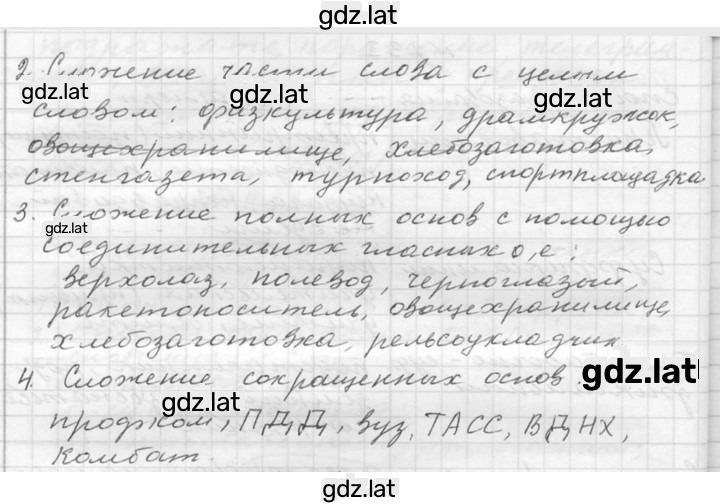 gdz.lat
2. Сложение части слова с целым
gdz.lat gdz.lat gdz.lat
словом: физкультура, драмкружок,
овощехранилище, хлебозаготовка,
стенгазета, турпоход, спортплощадка
3. Сложение полных основ с помощью
gdz.lat
соединительных гласных о, е:
верхолаз, полевод, черноглазый,
ракетоноситель, овощехранилище,
хлебозаготовка, рельсоукладчик
4. Сложение сокращенных основ:
gdz.lat gdz.lat
продмком, ПДД, вуз, ТАСС, ВДНХ,
комбат.
gdz.lat